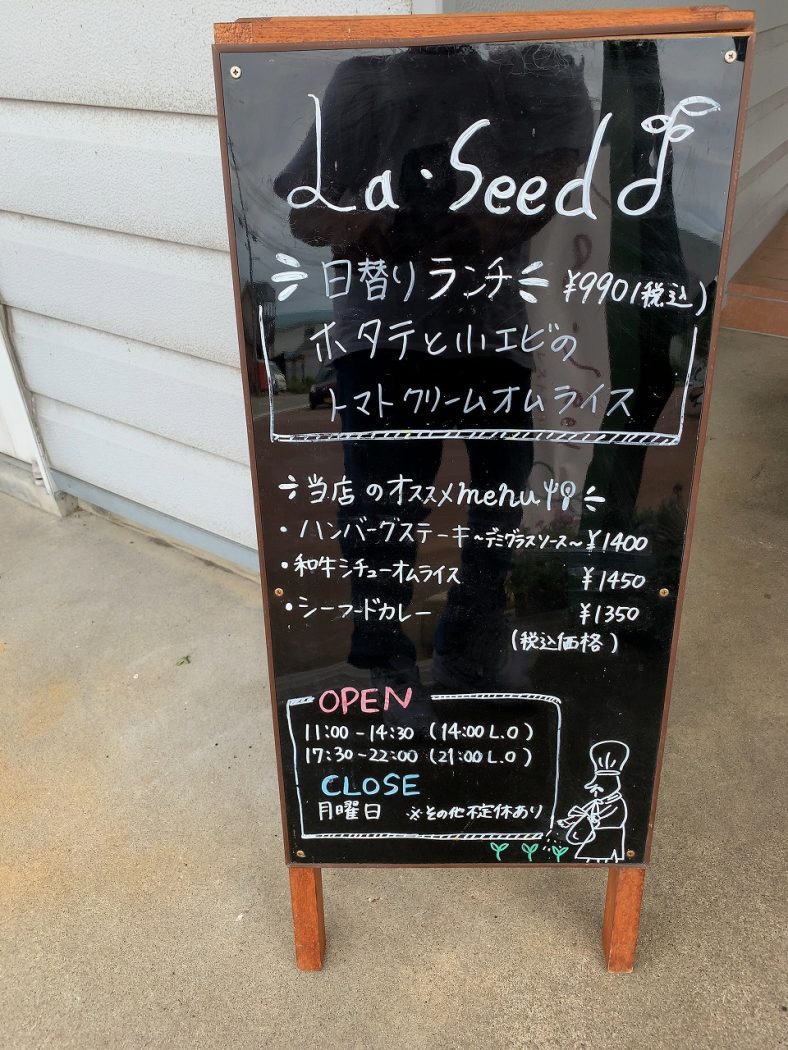 La・Seed
日替りランチ ¥990(税込)
ホタテと小エビの
トマトクリームオムライス
当店のオススメmenu
・ハンバーグステーキ ~デミグラスソース~ ¥1400
・和牛シチューオムライス ¥1450
・シーフードカレー ¥1350
(税込価格)
OPEN
11:00-14:30 (14:00 L.O)
17:30-22:00 (21:00 L.O)
CLOSE
月曜日 ※その他不定休あり